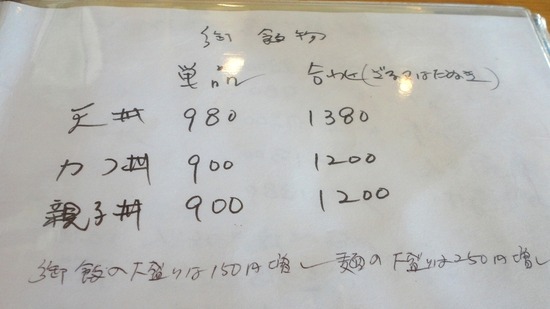 御飯物
単品 合わせ(ざる又はたぬき)
天丼 980 1380
カツ丼 900 1200
親子丼 900 1200
御飯の大盛りは150円増し 麺の大盛りは250円増し